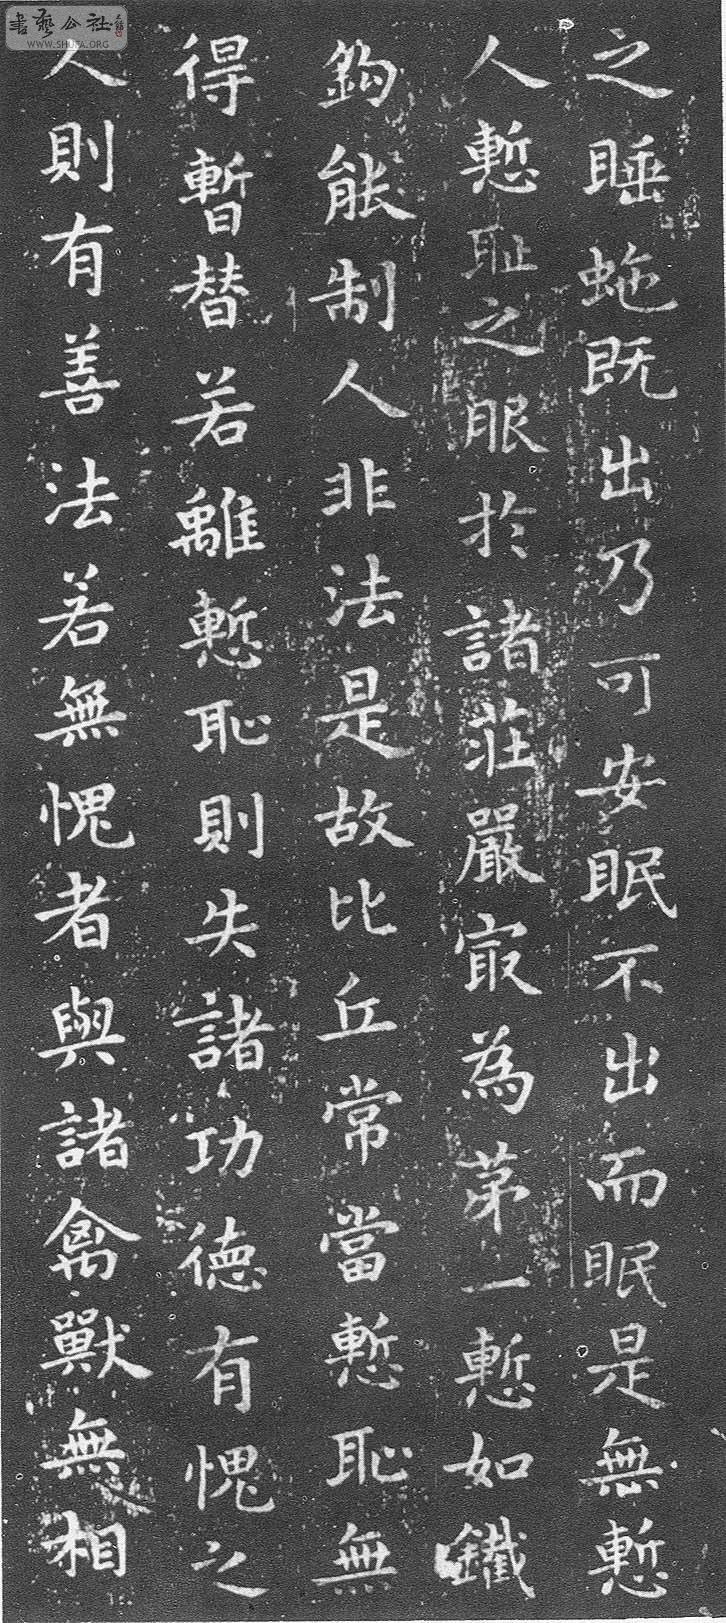 之睡虵既出乃可安眠不出而眠是無慙
人慙耻之服於諸莊嚴冣為苐一慙如鐵
鈎能制人非法是故比丘常當慙恥無
得暫替若離慙恥則失諸功德有愧之
人則有善法若無愧者與諸禽獸無相
書藝公社
WWW.SHUFA.ORG